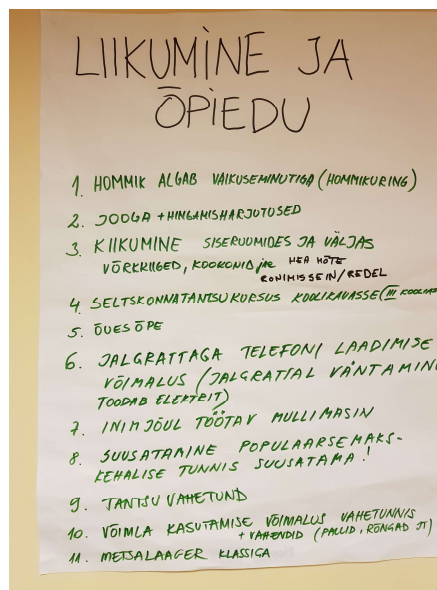 LIIKUMINE JA
ÕPIEDU
1. HOMMIK ALGAB VAIKUSEMINUTIGA (HOMMIKURING)
2. JOOGA + HINGAMISHARJUTUSED
3. KIIKUMINE SISERUUMIDES JA VÄLJAS
VÕRKKIIGED, KOOKONID jne HEA MÕTE
RONIMISSEIN/REDEL
4. SELTSKONNATANTSU KURSUS KOOLIKAVASSE (III
5. ÕUESÕPE
6. JALGRATTAGA TELEFONI LAADIMISE
VÕIMALUS (JALGRATTAL VÄNTAMINE
TOODAB ELEKTRIT)
7. INIMJÕUL TÖÖTAV MULLIMASIN
8. SUUSATAMINE POPULAARSEMAKS-
KEHALISE TUNNIS SUUSATAMA!
9. TANTSU VAHETUND
10. VÕIMLA KASUTAMISE VÕIMALUS VAHETUNNIS
+ VAHENDID (PALLID, RÕNGAD JT)
11. METSALAAGER KLASSIGA